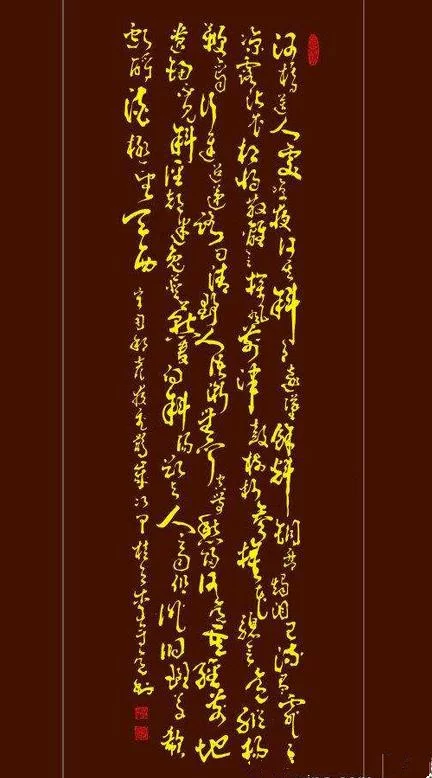 河橋送人處涼夜何其斜月遠墮餘輝銅盤燭淚已流盡霏霏
涼露沾衣相將散離會探風前津鼓樹杪參旗花驄會意縱揚
鞭亦自行遲迢遞路回清野人語漸無聞空帶愁歸何意重經前地
遺鈿不見斜徑都迷兔葵燕麥向斜陽欲與人齊但徘徊班草欷
歔酹酒極望天西
宋周邦彥夜飛鵲歲次甲桂月